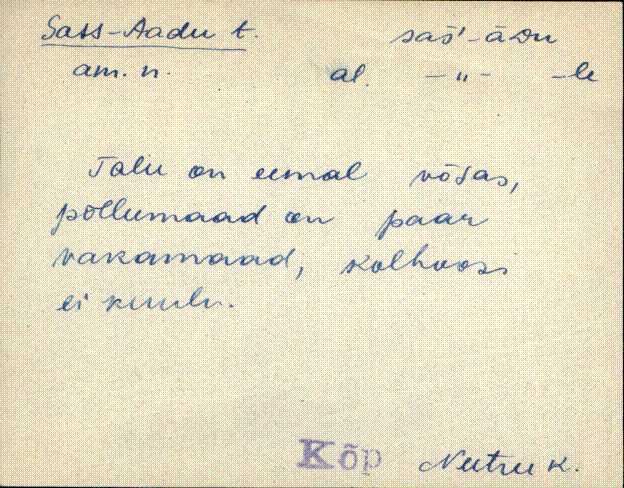 Sass-Aadu t. saš'-āDu
am. n. al. -"- -le
Talu on eemal võsas,
põllumaad on paar
vakamaad, kolhoosi
ei kuulu.
Kõp Neitru k.